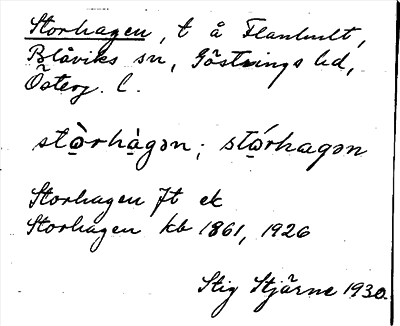 Storhagen, t å Flanhult,
Blåviks sn, Göstrings hd,
Österg. l.
stò̱rhà̱gən; stó̱rhagən
Storhagen Jt ek
Storhagen kb 1861, 1926
Stig Stjärne 1930.